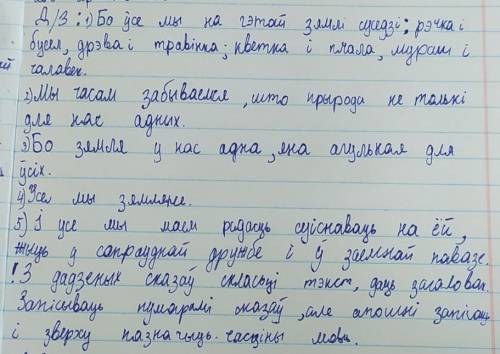 Д/З: 1) Бо ўсе мы на гэтай зямлі суседзі: рэчка і
бусел, дрэва і травінка; кветка і пчала, мураш і
чалавек.
2) Мы часам забываемся, што прырода не толькі
для нас адных.
3) Бо зямля у нас адна, яна агульная для
ўсіх.
4) Усе мы зямляне.
5) І усе мы маем радасць суіснаваць на ёй,
жыць у сапраўднай дружбе і ў заемнай павазе.
! З дадзеных сказаў скласьці тэкст, даць загаловак.
Запісываць нумарамі сказаў, але апошні запісаць
і зверху пазначыць часціны мовы.